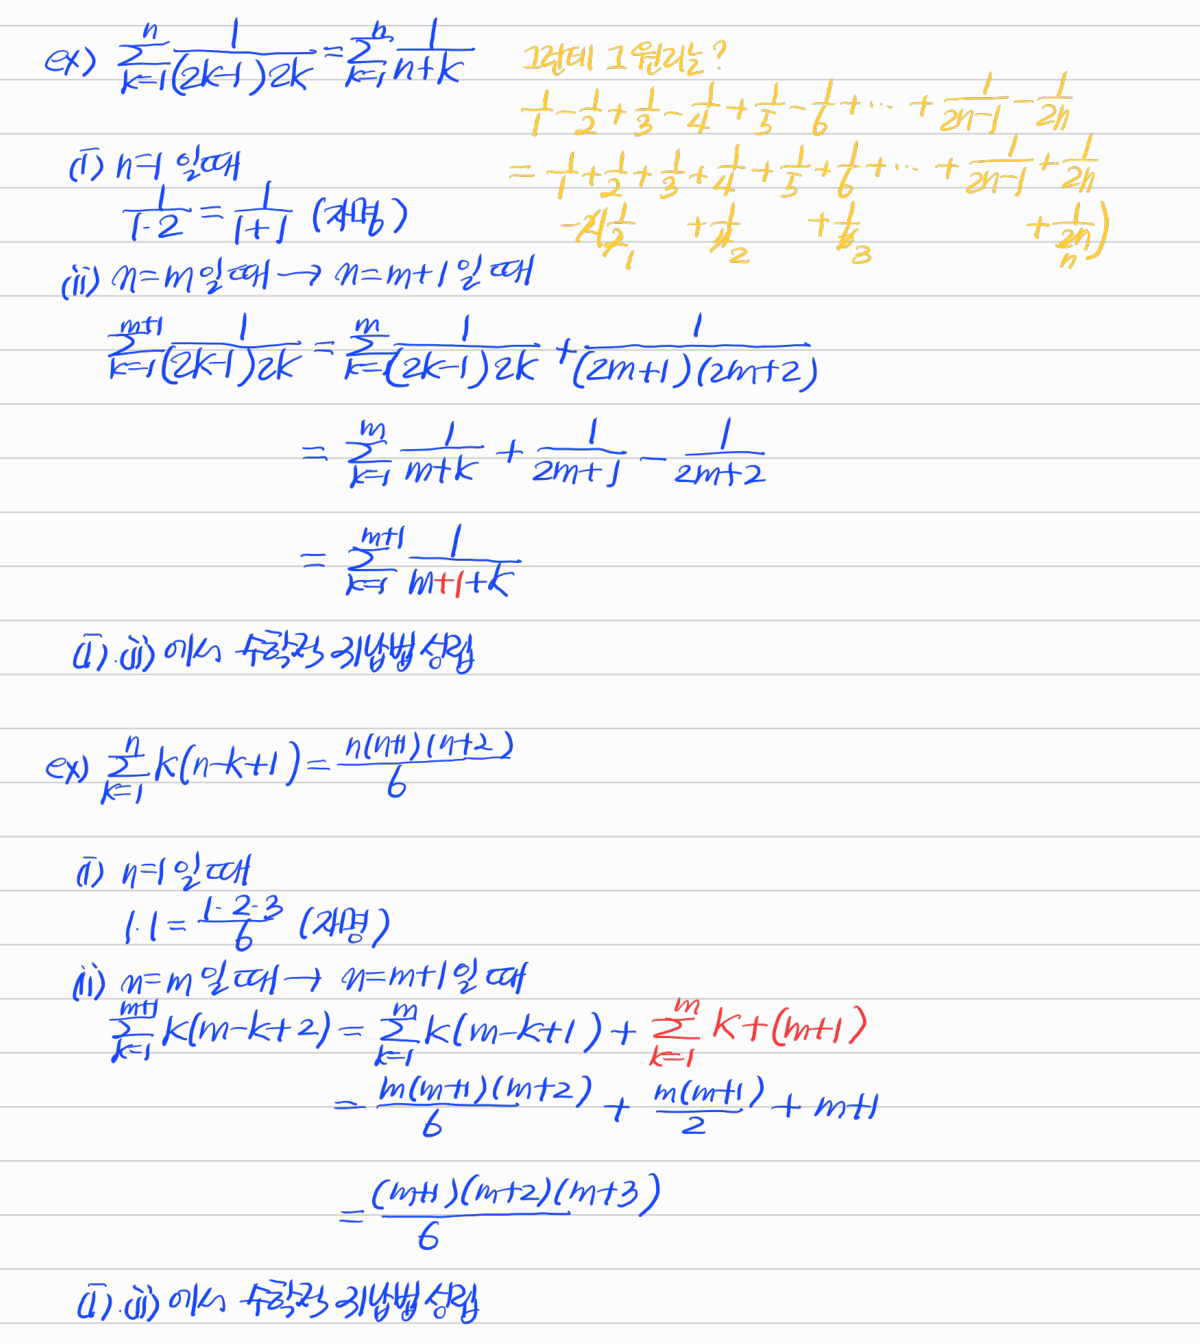 ex) \sum_{k=1}^{n} \frac{1}{(2k-1)2k} = \sum_{k=1}^{n} \frac{1}{n+k}
그런데 그 원리는?
\frac{1}{1} - \frac{1}{2} + \frac{1}{3} - \frac{1}{4} + \frac{1}{5} - \frac{1}{6} + \cdots + \frac{1}{2n-1} - \frac{1}{2n}
= \frac{1}{1} + \frac{1}{2} + \frac{1}{3} + \frac{1}{4} + \frac{1}{5} + \frac{1}{6} + \cdots + \frac{1}{2n-1} + \frac{1}{2n}
-2(\frac{1}{2} + \frac{1}{4} + \frac{1}{6} + \frac{1}{2n})
1 2 3 n
(i) n=1 일 때
\frac{1}{1·2} = \frac{1}{1+1} (자명)
(ii) n=m 일 때 → n=m+1 일 때
\sum_{k=1}^{m+1} \frac{1}{(2k-1)2k} = \sum_{k=1}^{m} \frac{1}{(2k-1)2k} + \frac{1}{(2m+1)(2m+2)}
= \sum_{k=1}^{m} \frac{1}{m+k} + \frac{1}{2m+1} - \frac{1}{2m+2}
= \sum_{k=1}^{m+1} \frac{1}{m+1+k}
(i).(ii) 에서 수학적 귀납법 성립
ex) \sum_{k=1}^{n} k(n-k+1) = \frac{n(n+1)(n+2)}{6}
(i) n=1 일 때
1·1 = \frac{1·2·3}{6} (자명)
(ii) n=m 일 때 → n=m+1 일 때
\sum_{k=1}^{m+1} k(m-k+2) = \sum_{k=1}^{m} k(m-k+1) + \sum_{k=1}^{m} k+(m+1)
= \frac{m(m+1)(m+2)}{6} + \frac{m(m+1)}{2} + m+1
= \frac{(m+1)(m+2)(m+3)}{6}
(i).(ii) 에서 수학적 귀납법 성립